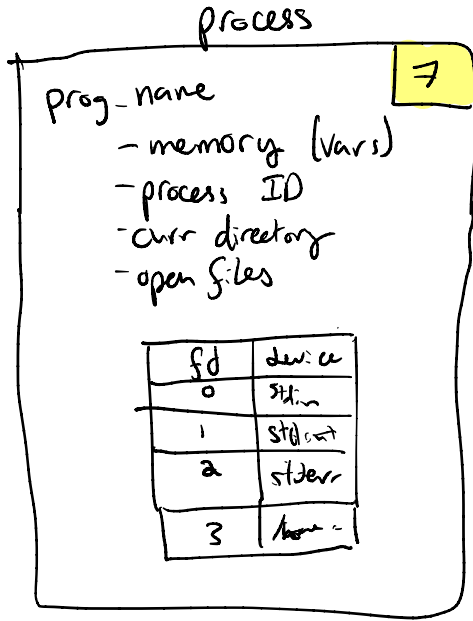 process
7
prog_name
- memory (vars)
- process ID
- curr directory
- open files
fd device
0 stdin
1 stdout
2 stderr
3